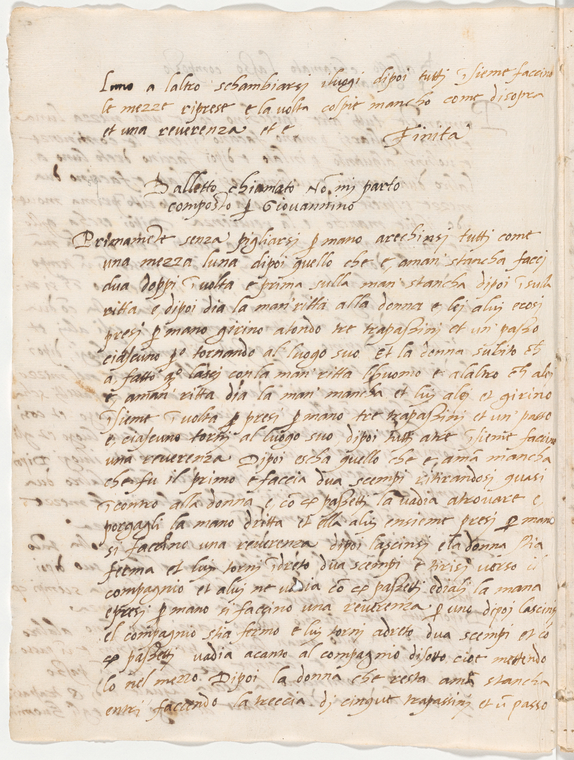 luno a laltro schambiarsi iluogi dipoi tutti īsieme faccino
le mezze riprese e la volta colpie mancho come disopra
et una reverenza et e Finita
Balletto chiamato Nō mi parto
composto p̱ Giovannino
Primamēte senza pigliarsi p̱ mano arechinsi tutti come
una mezza luna dipoi quello che e aman stancha facci
dua doppi ī volta e prima sulla man stancha dipoi ī sulla
ritta e dipoi dia la man ritta alla donna e lej aluj ecosi
presi p̱ mano girino atondo tre trapassini et un passo
ciascuno p̱ tornando al luogo suo Et la donna subito ch̄
a fatto con la man ritta lhuomo e alaltro ch̄ ale
e aman ritta dia la man mancha et luj alej et girino
īsieme ī volta p̱ presi p̱ mano tre trapassini et un passo
e ciascuno torni al luogo suo dipoi tutti a tre īsieme faccino
una reverenza Dipoi escha quello che e amā mancha
che fu il primo e faccia dua scempi ritirandosi quasi
īcontro alla donna e cō passetti la vadia atrovare e
porgagli la mano dritta et ella aluj ensieme presi p̱ mano
si faccino una reverenza dipoi lascinsi e la donna stia
ferma et luj torni īdreto dua scempi e verso il
compagnio et aluj ne vadia cō passetti e diali la mana
e presi p̱ mano si faccino una reverenza p̱ uno dipoi lascinsi
el compagnio stia fermo e luj torni adreto dua scempi et cō
passetti vadia acanto al compagnio disotto cioe mettendo
lo nel mezzo Dipoi la donna che resta amā stancha
entri faccendo la treccia dj cinque trapassinj et ū passo